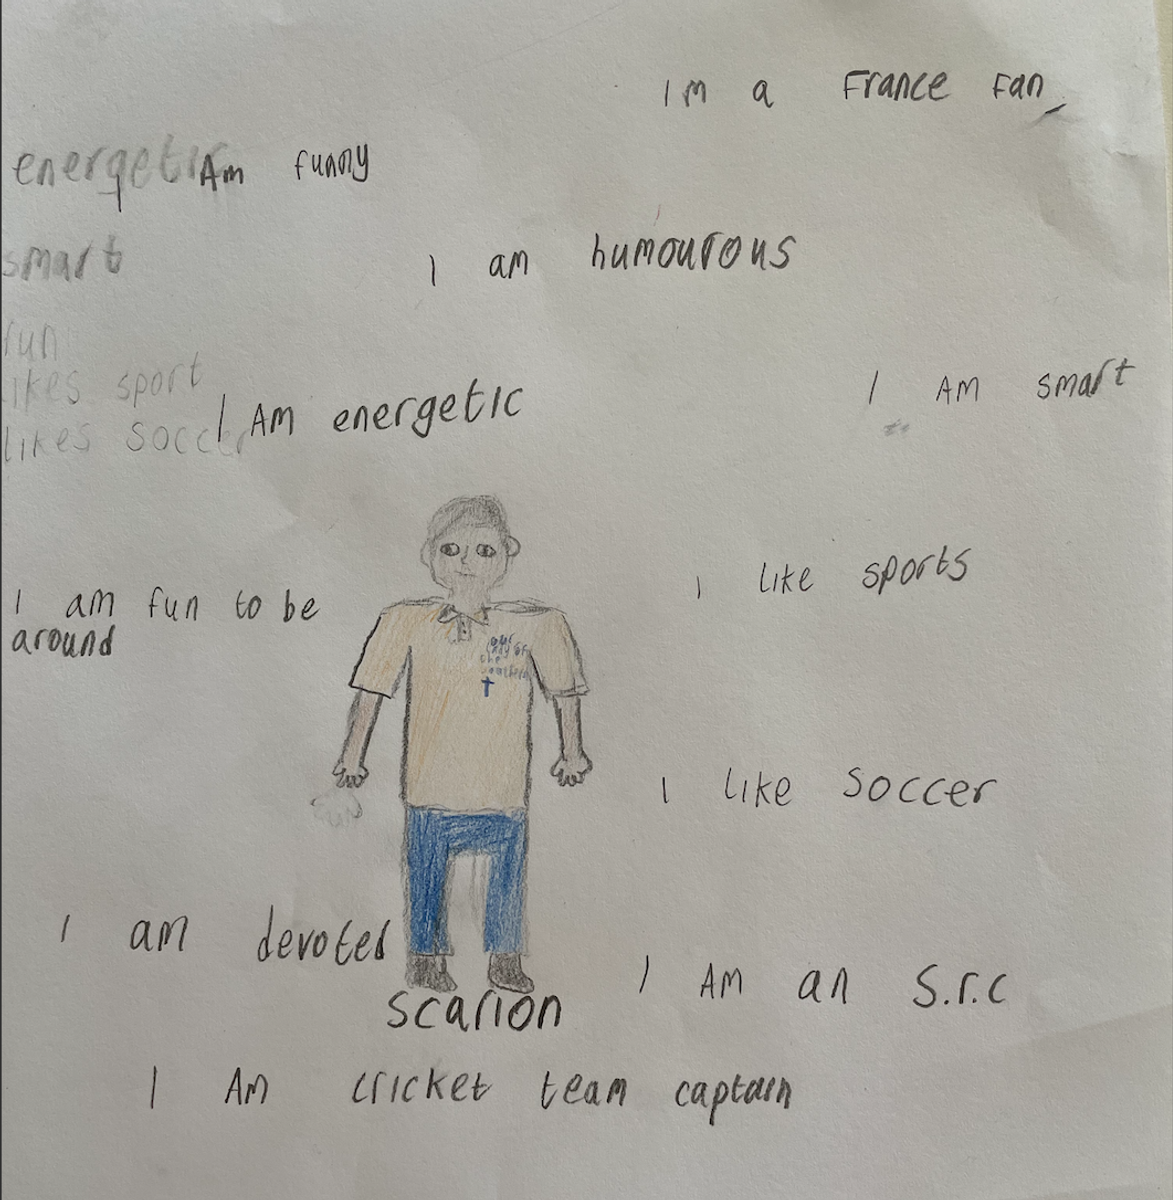 Im a France Fan
energetic
Am funny
smart
I am humourous
fun
likes sport
I AM smart
likes soccer
I AM energetic
I like sports
I am fun to be
around
our
lady of
the
I like soccer
I am devoted
I AM an S.r.c
scarion
I AM cricket team captain